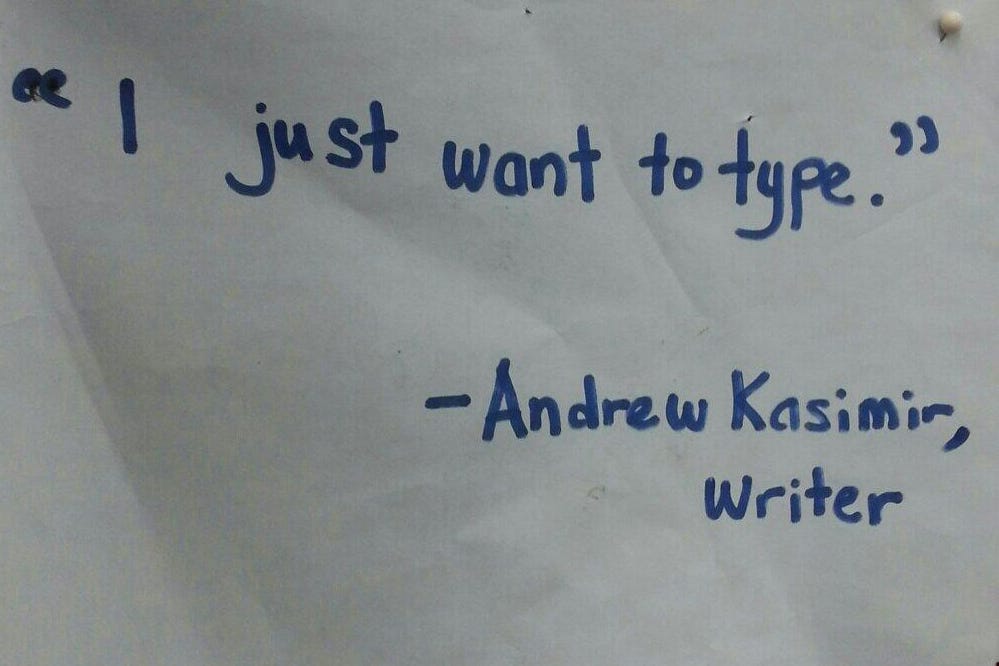 “ I just want to type.”
-Andrew Kasimir,
Writer